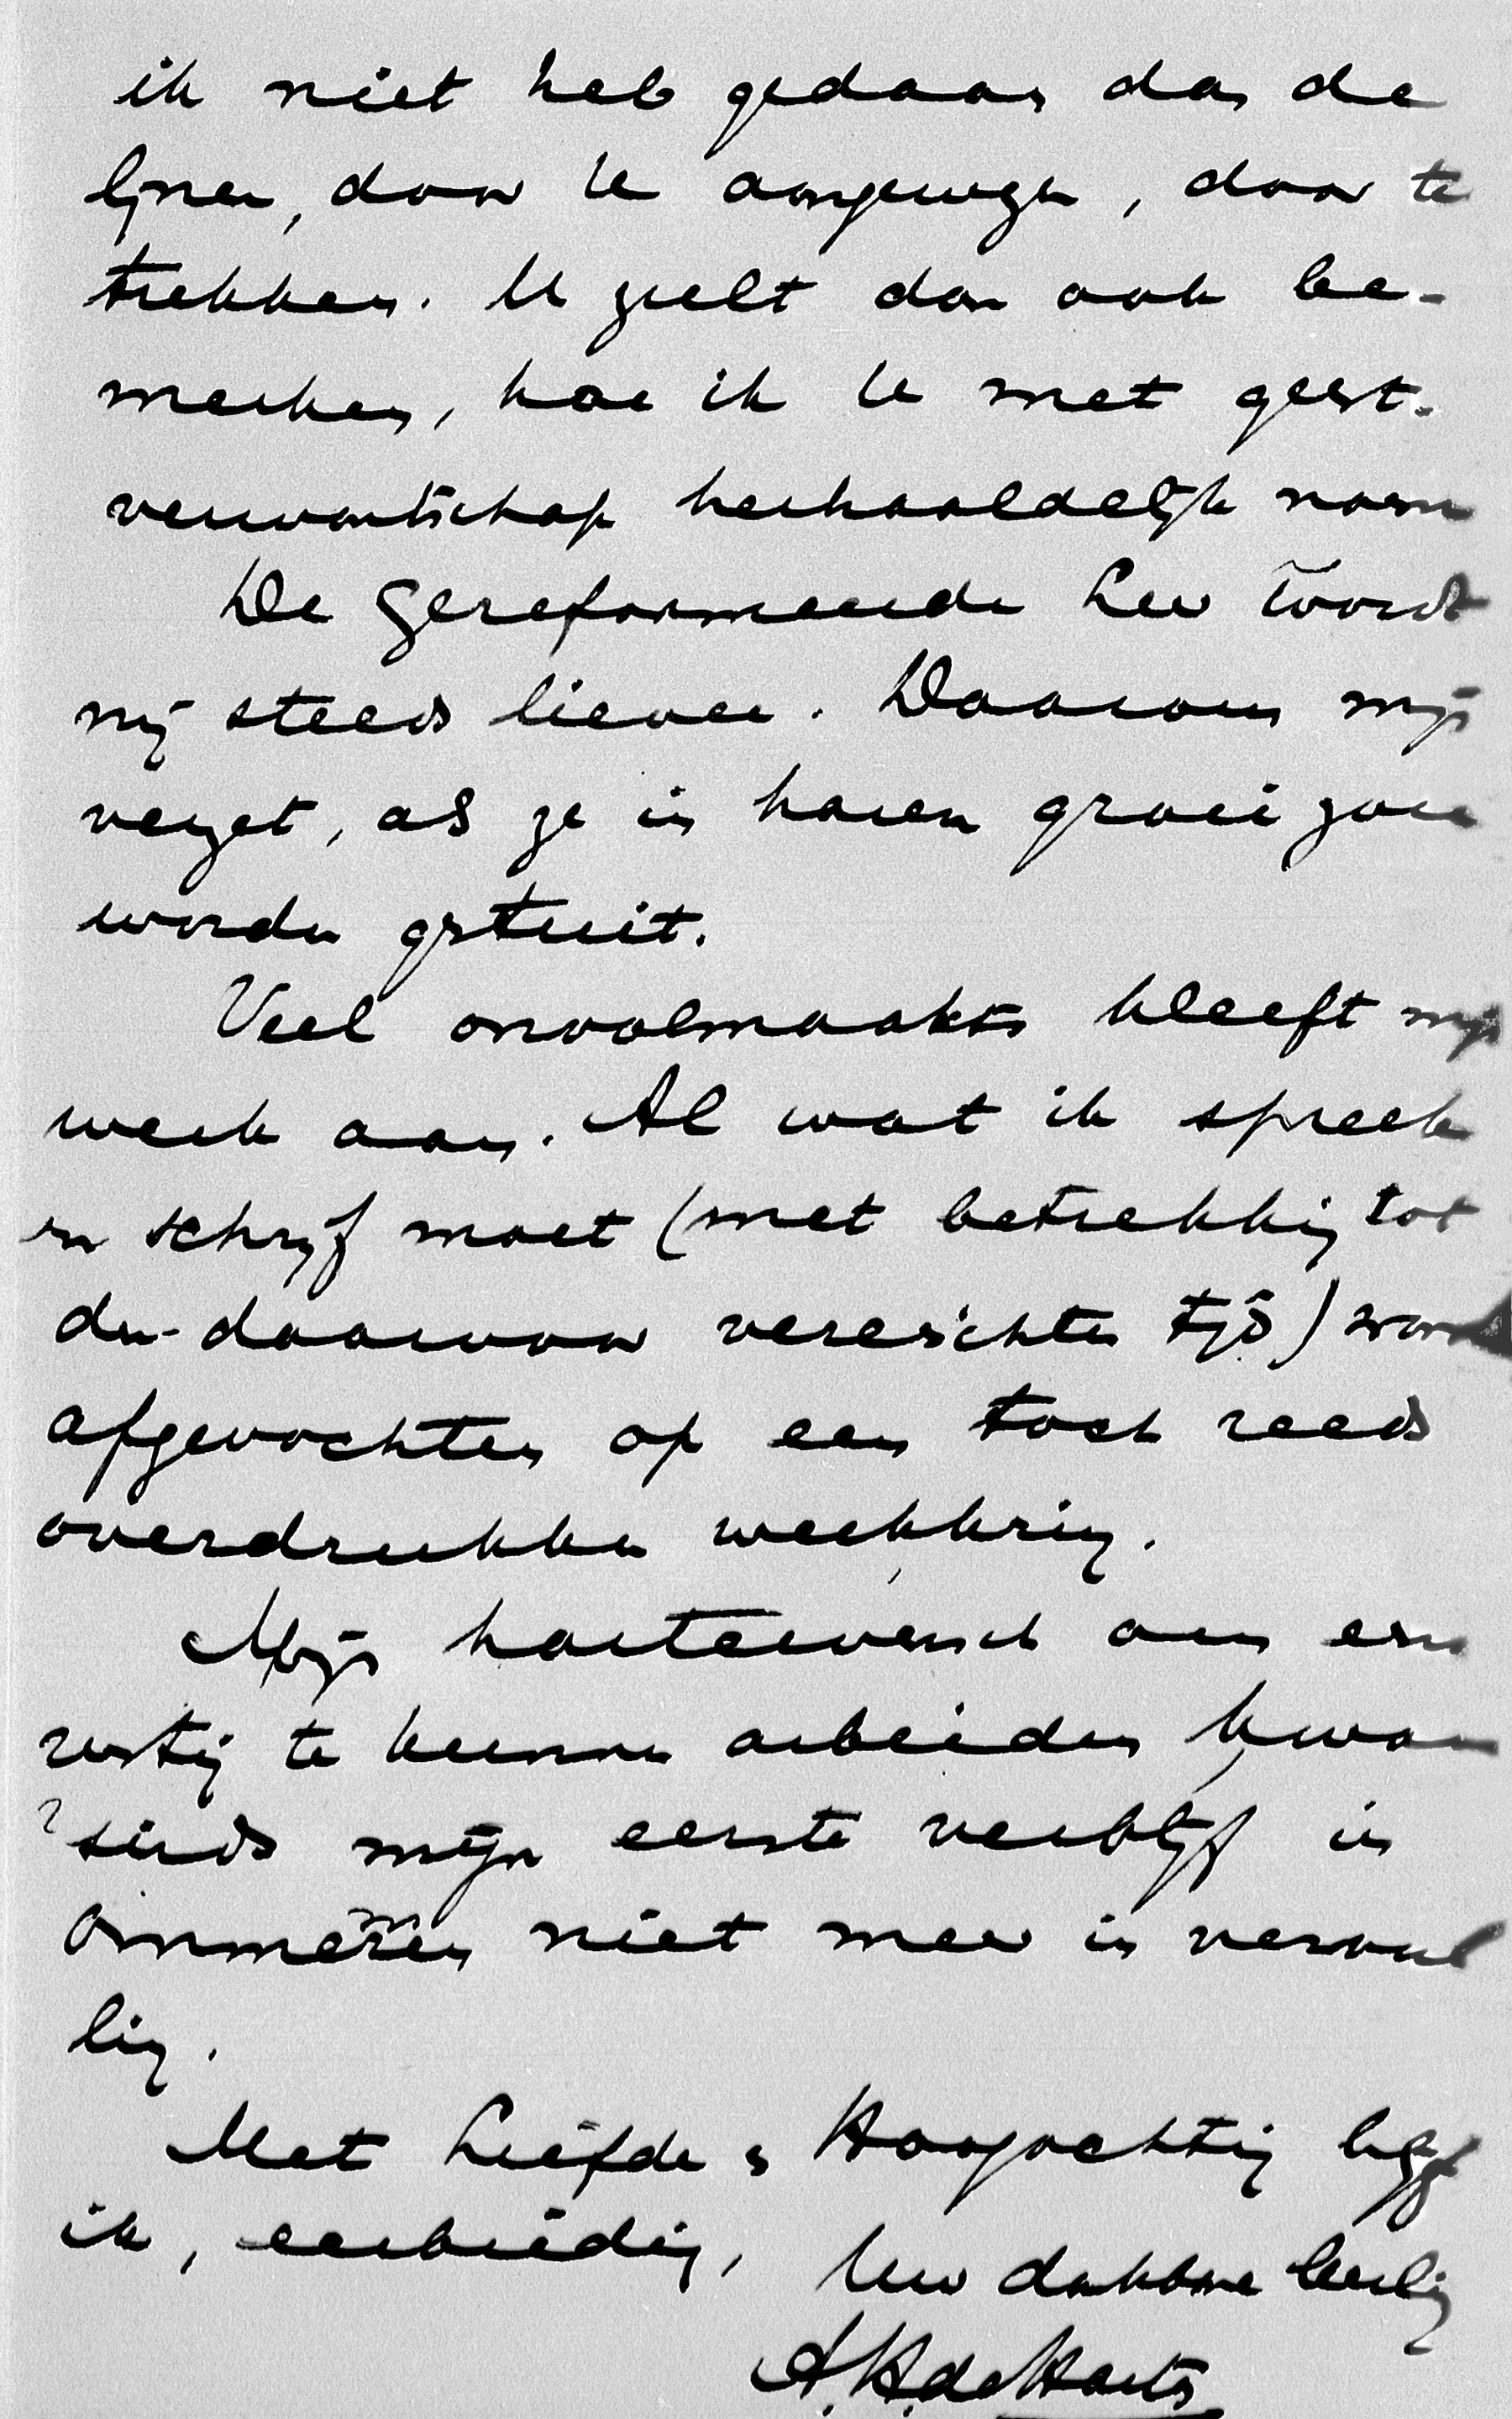 ik niet heb gedaan dan de
lijnen, door U aangewezen, door te
trekken. U zult dan ook be-
merken, hoe ik U met geest-
verwantschap herhaaldelijk noem
De Gereformeerde Leer wordt
mij steeds liever. Daarom mijn
verzet, als ze in haren groei zou
worden gestuit.
Veel onvolmaakts kleeft mijn
werk aan. Al wat ik spreek
en schrijf moet (met betrekking tot
den daarvoor vereischten tijd) worden
afgevochten op een toch reeds
overdrukken werkkring.
Mijn hartewensch om eens
rustig te kunnen arbeiden kwam
sinds mijn eerste verblijf in
Ommeren niet meer in vervul
ling.
Met Liefde en Hoogachting blijf
ik, eerbiedig, Uw dankbare leerling
A.H. de Hartog